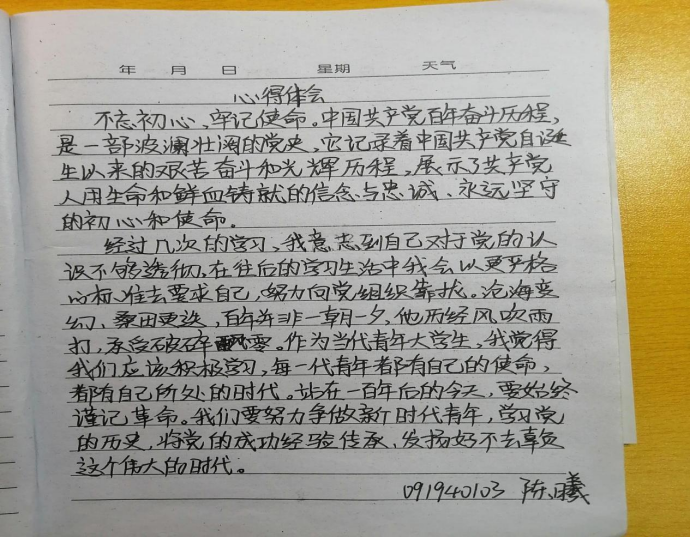 年 月 日 星期 天气
心得体会
不忘初心、牢记使命。中国共产党百年奋斗历程,
是一部波澜壮阔的党史,它记录着中国共产党自诞
生以来的艰苦奋斗和光辉历程,展示了共产党
人用生命和鲜血铸就的信念与忠诚、永远坚守
的初心和使命。
经过几次的学习,我意志到自己对于党的认
识不够透彻,在往后的学习生活中我会以更严格
的标准去要求自己,努力向党组织靠拢。沧海变
幻、桑田更迭,百年并非一朝一夕,他历经风吹雨
打,承受破碎飘零。作为当代青年大学生,我觉得
我们应该积极学习,每一代青年都有自己的使命,
都有自己所处的时代。站在一百年后的今天,要始终
谨记革命。我们要努力争做新时代青年,学习党
的历史,将党的成功经验传承、发扬好不去辜负
这个伟大的时代。
091940103 陈曦